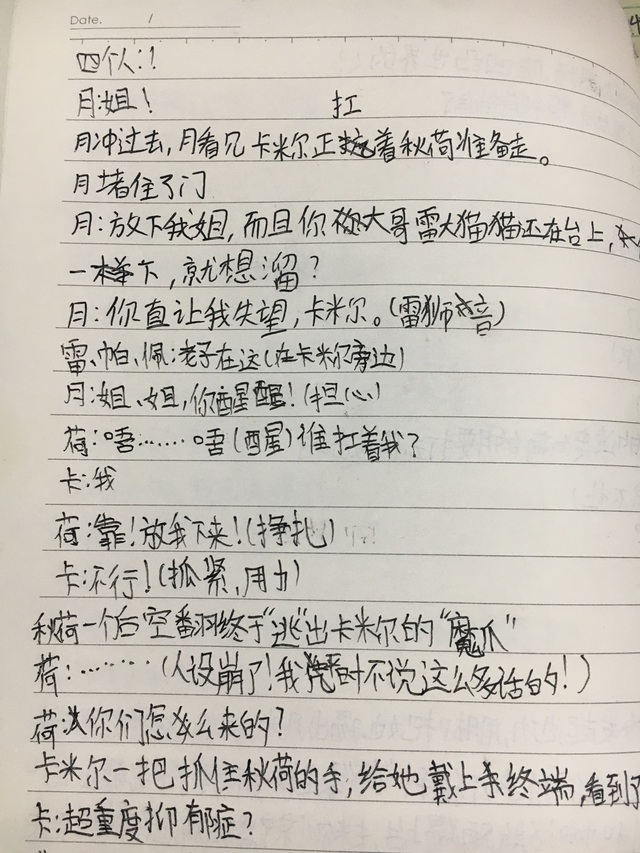 Date. /
四个人:!
月:姐!
扛
月冲过去,月看见卡米尔正着秋荷准备走。
月堵住了门
月:放下我姐,而且你大哥雷大猫猫还在台上,
一下,就想溜?
月:你真让我失望,卡米尔。(雷狮音)
雷、帕、佩:老子在这(在卡米尔旁边)
月:姐、姐,你醒醒!(担心)
荷:唔……唔(醒)谁扛着我?
卡:我
荷:靠!放我下来!(挣扎)
卡:不行!(抓紧,用力)
秋荷一个后空翻终于“逃”出卡米尔的“魔爪”
荷:……(人设崩了!我平时不说这么多话的!)
荷:你们怎么来的?
卡米尔一把抓住秋荷的手,给她戴上终端,看到了
卡:超重度抑郁症?